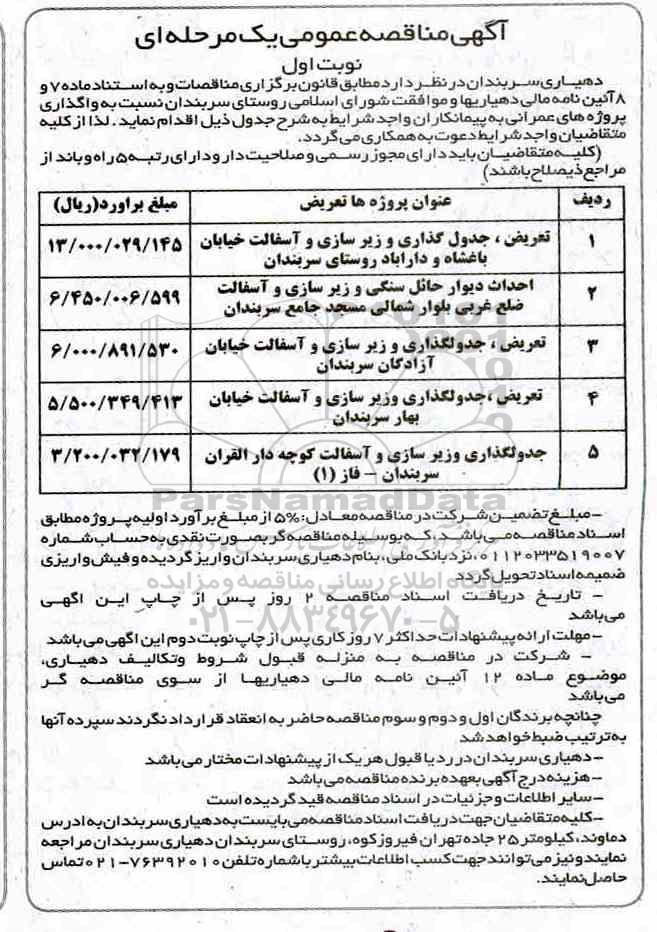 آگهی مناقصه عمومی یک مرحله ای
نوبت اول
دهیاری سربندان در نظر دارد مطابق قانون برگزاری مناقصات و به استناد ماده ۷ و
۸ آئین نامه مالی دهیاریها و موافقت شورای اسلامی روستای سربندان نسبت به واگذاری
پروژه های عمرانی به پیمانکاران واجد شرایط به شرح جدول ذیل اقدام نماید. لذا از کلیه
متقاضیان واجد شرایط دعوت به همکاری می گردد.
(کلیه متقاضیان باید دارای مجوز رسمی و صلاحیت دار و دارای رتبه ۵ راه و باند از
مراجع ذیصلاح باشند)
ردیف عنوان پروژه ها تعریض مبلغ براورد(ریال)
۱ تعریض ، جدول گذاری و زیر سازی و آسفالت خیابان ۱۳/۰۰۰/۰۲۹/۱۴۵
باغشاه و داراباد روستای سربندان
۲ احداث دیوار حائل سنگی و زیر سازی و آسفالت ۶/۴۵۰/۰۰۶/۵۹۹
ضلع غربی بلوار شمالی مسجد جامع سربندان
۳ تعریض ، جدولگذاری و زیر سازی و آسفالت خیابان ۶/۰۰۰/۸۹۱/۵۳۰
آزادگان سربندان
۴ تعریض ،جدولگذاری وزیر سازی و آسفالت خیابان ۵/۵۰۰/۳۴۹/۴۱۳
بهار سربندان
۵ جدولگذاری وزیر سازی و آسفالت کوچه دار القران ۳/۲۰۰/۰۳۲/۱۷۹
سربندان – فاز (۱)
ParsNamadData
–مبلغ تضمین شرکت در مناقصه معادل: ۵% از مبلغ برآورد اولیه پروژه مطابق
اسناد مناقصه می باشد، که بوسیله مناقصه گر بصورت نقدی به حساب شماره
۰۱۱۲۰۳۳۵۱۹۰۰۷، نزد بانک ملی، بنام دهیاری سربندان واریز گردیده و فیش واریزی
ضمیمه اسناد تحویل گردد
پایگاه اطلاع رسانی مناقصه و مزایده
– تاریخ دریافت اسناد مناقصه ۲ روز پس از چاپ این اگهی
می باشد
۰۲۱-۸۸۳۴۹۶۷۰-۵
–مهلت ارائه پیشنهادات حداکثر ۷ روز کاری پس از چاپ نوبت دوم این اگهی می باشد
– شرکت در مناقصه به منزله قبول شروط وتکالیف دهیاری،
موضوع ماده ۱۲ آئین نامه مالی دهیاریها از سوی مناقصه گر
می باشد
چنانچه برندگان اول و دوم و سوم مناقصه حاضر به انعقاد قرارداد نگردند سپرده آنها
به ترتیب ضبط خواهد شد
–دهیاری سربندان در رد یا قبول هر یک از پیشنهادات مختار می باشد
–هزینه درج آگهی بعهده برنده مناقصه می باشد
–سایر اطلاعات و جزئیات در اسناد مناقصه قید گردیده است
–کلیه متقاضیان جهت دریافت اسناد مناقصه می بایست به دهیاری سربندان به ادرس
دماوند، کیلومتر ۲۵ جاده تهران فیروزکوه، روستای سربندان دهیاری سربندان مراجعه
نمایند و نیز می توانند جهت کسب اطلاعات بیشتر با شماره تلفن ۷۶۳۹۲۰۱۰-۰۲۱ تماس
حاصل نمایند.